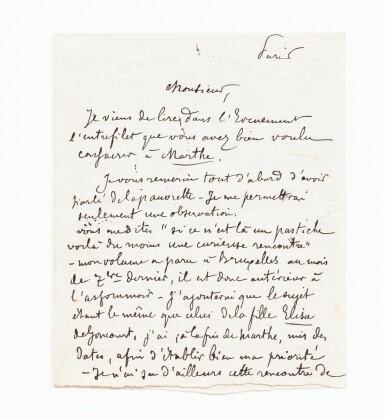 Paris
Monsieur,
Je viens de lire, dans l'Evenement
l'entrefilet que vous avez bien voulu
consacrer à Marthe.
Je vous remercie tout d'abord d'avoir
parlé de la pauvrette - Je me permettrai
seulement une observation.
vous me dites " si ce n'est là un pastiche
voilà du moins une curieuse rencontre"
- mon volume a paru à Bruxelles au mois
de 7bre dernier, il est donc antérieur à
l'assommoir - J'ajouterai que le sujet
étant le même que celui de la fille Elisa
de Goncourt, j'ai, à la fin de Marthe, mis des
dates, afin d'établir bien ma priorité
- Je n'ai su d'ailleurs cette rencontre de